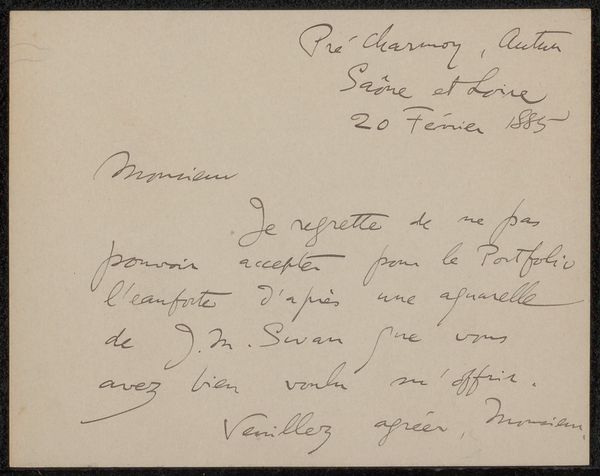 Pré Charmoy, Autun
Saône et Loire
20 Février 1885
Monsieur
Je regrette de ne pas
pouvoir accepter pour le Portfolio
l'eauforte d'après une aquarelle
de J. M. Swan que vous
avez bien voulu m'offrir.
Veuillez agréer, Monsieur,